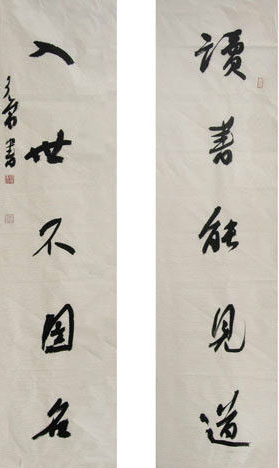 讀書能見道
入世不圖名